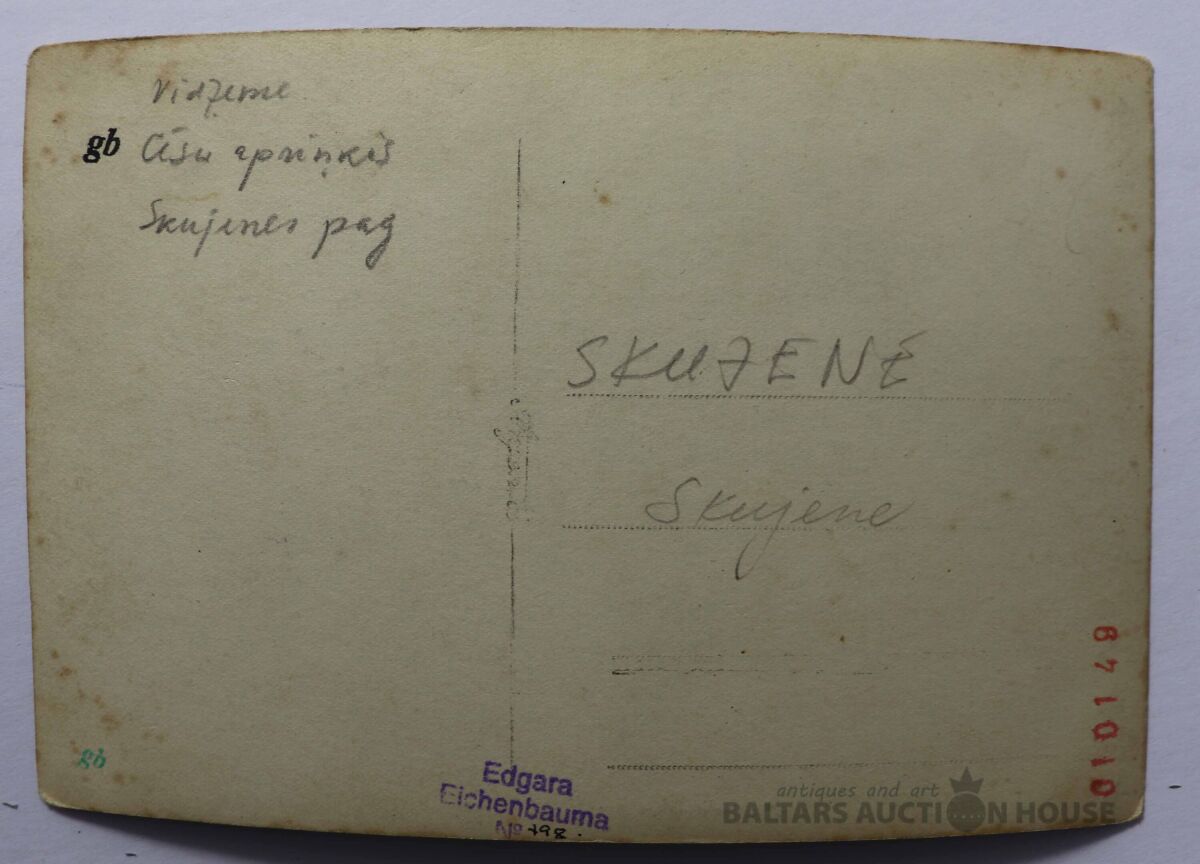 Vidzeme
gb
Cēsu apriņķis
Skujenes pag
SKUJENE
Skujene
010149
gb
Edgara
Eichenbauma
№ 198.
antiques and art
BALTARS AUCTION HOUSE